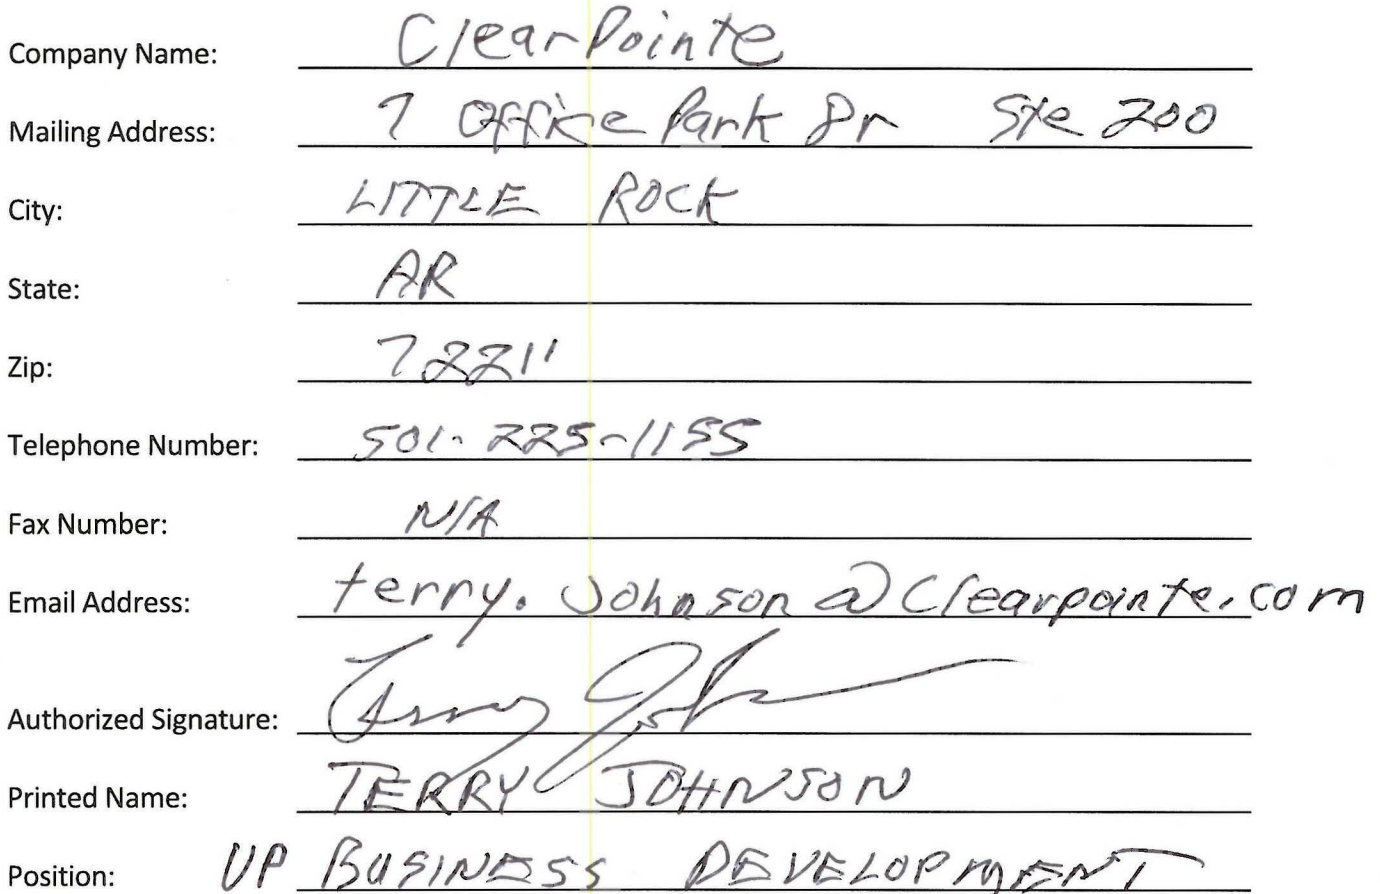 Company Name: ClearPointe
Mailing Address: 7 Office Park Dr Ste 200
City: LITTLE ROCK
State: AR
Zip: 72211
Telephone Number: 501-225-1155
Fax Number: N/A
Email Address: terry.Johnson@Clearpointe.com
Authorized Signature: Terry Joh
Printed Name: TERRY JOHNSON
Position: VP BUSINESS DEVELOPMENT